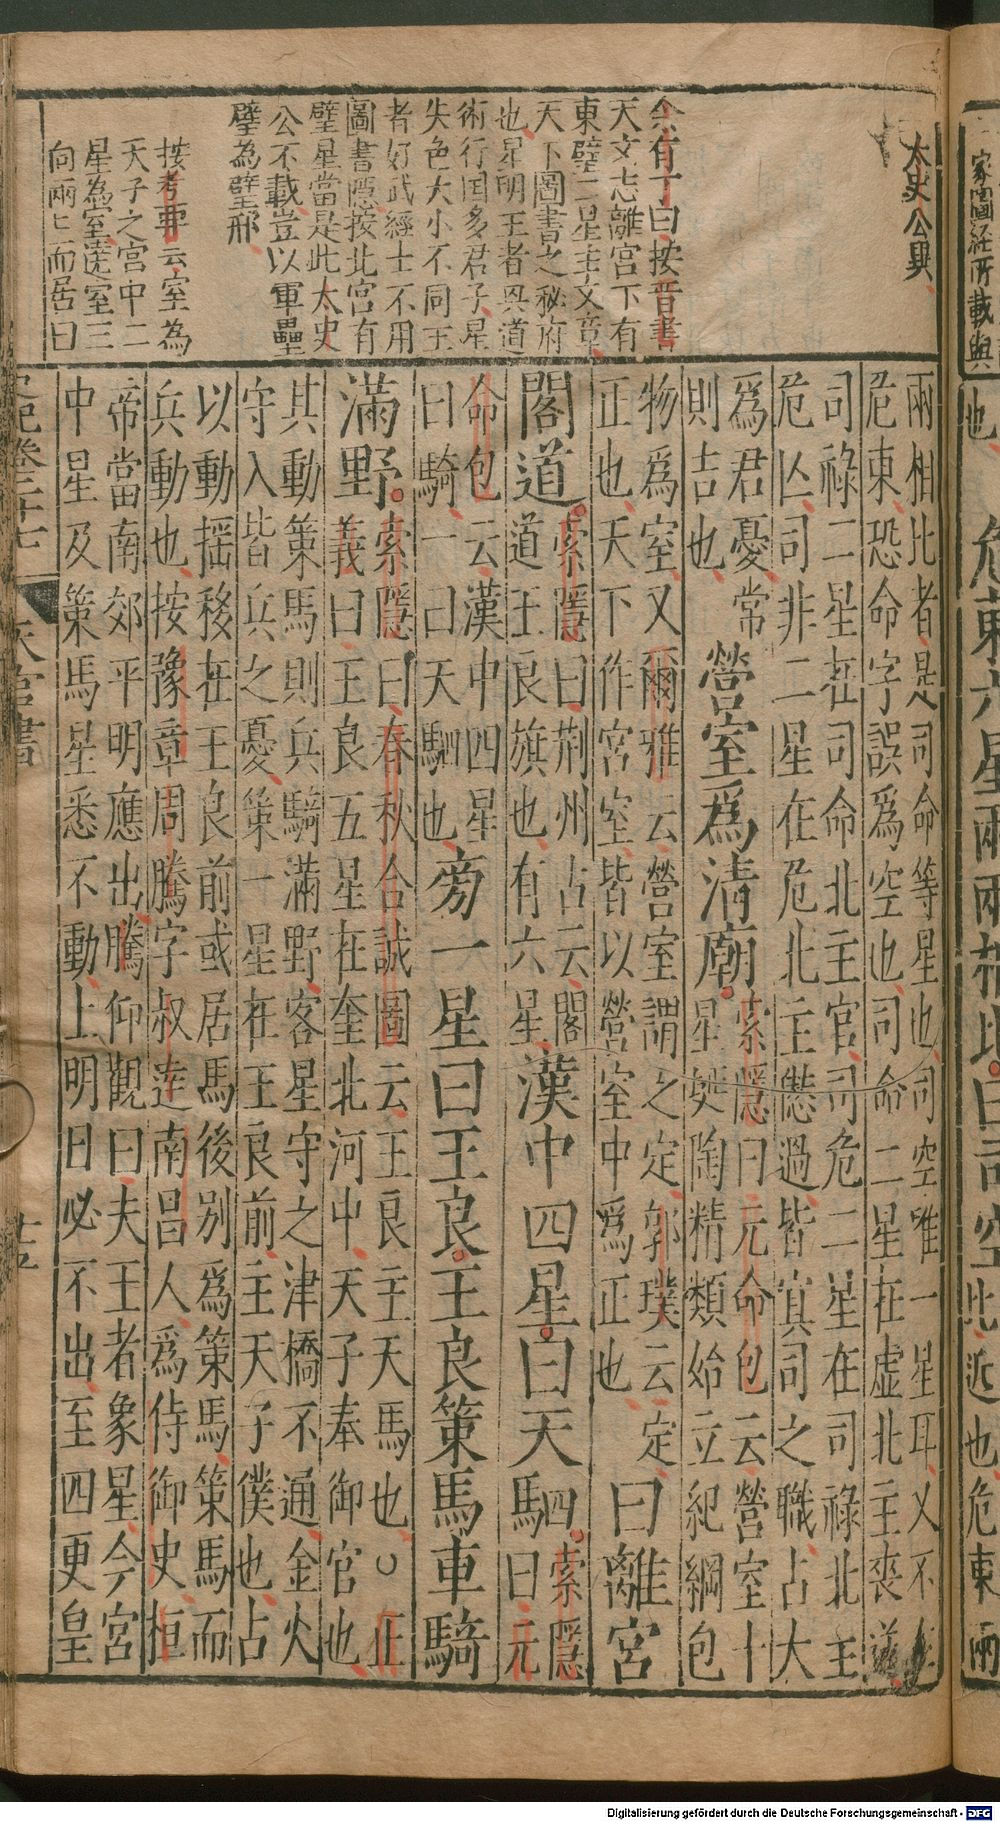 家圖經所載與
也
危東六星兩兩相比曰司空
比近也危東兩
太史公異
余有丁曰按晋書
天文志離宮下有
東壁二星主文章
天下圖書之秘府
也星明王者興道
術行国多君子星
失色大小不同王
者好武經士不用
圖書隠按北宮有
壁星當是此太史
公不載豈以軍壘
壁為壁邪
按考要云室為
天子之宮中二
星為室遶室三
向兩〻而居曰
兩相比者是司命等星也司空唯一星耳又不在
危東恐命字誤爲空也司命二星在虛北主喪送
司祿二星在司命北主官司危二星在司祿北主
危亾司非二星在危北主愆過皆寘司之職占大
爲君憂常
則吉也
營室爲清廟
索隱曰元命包云營室十
星埏陶精類始立紀綱包
物爲室又爾雅云營室謂之定郭璞云定
正也天下作宮室皆以營室中爲正也
曰離宮
閣道
索隱曰荆州占云閣
道王良旗也有六星
漢中四星曰天駟
索隱
曰元
命包云漢中四星
曰騎一曰天駟也
旁一星曰王良王良策馬車騎
滿野
索隱曰春秋合誠圖云王良主天馬也○正
義曰王良五星在奎北河中天子奉御官也
其動策馬則兵騎滿野客星守之津橋不通金火
守入皆兵之憂策一星在王良前主天子僕也占
以動揺移在王良前或居馬後别爲策馬策馬而
兵動也按豫章周騰字叔達南昌人爲侍御史桓
帝當南郊平明應出騰仰觀曰夫王者象星今宮
中星及策馬星悉不動上明日必不出至四更皇
史記卷二十七
天官書
廿五
Digitalisierung gefördert durch die Deutsche Forschungsgemeinschaft - DFG